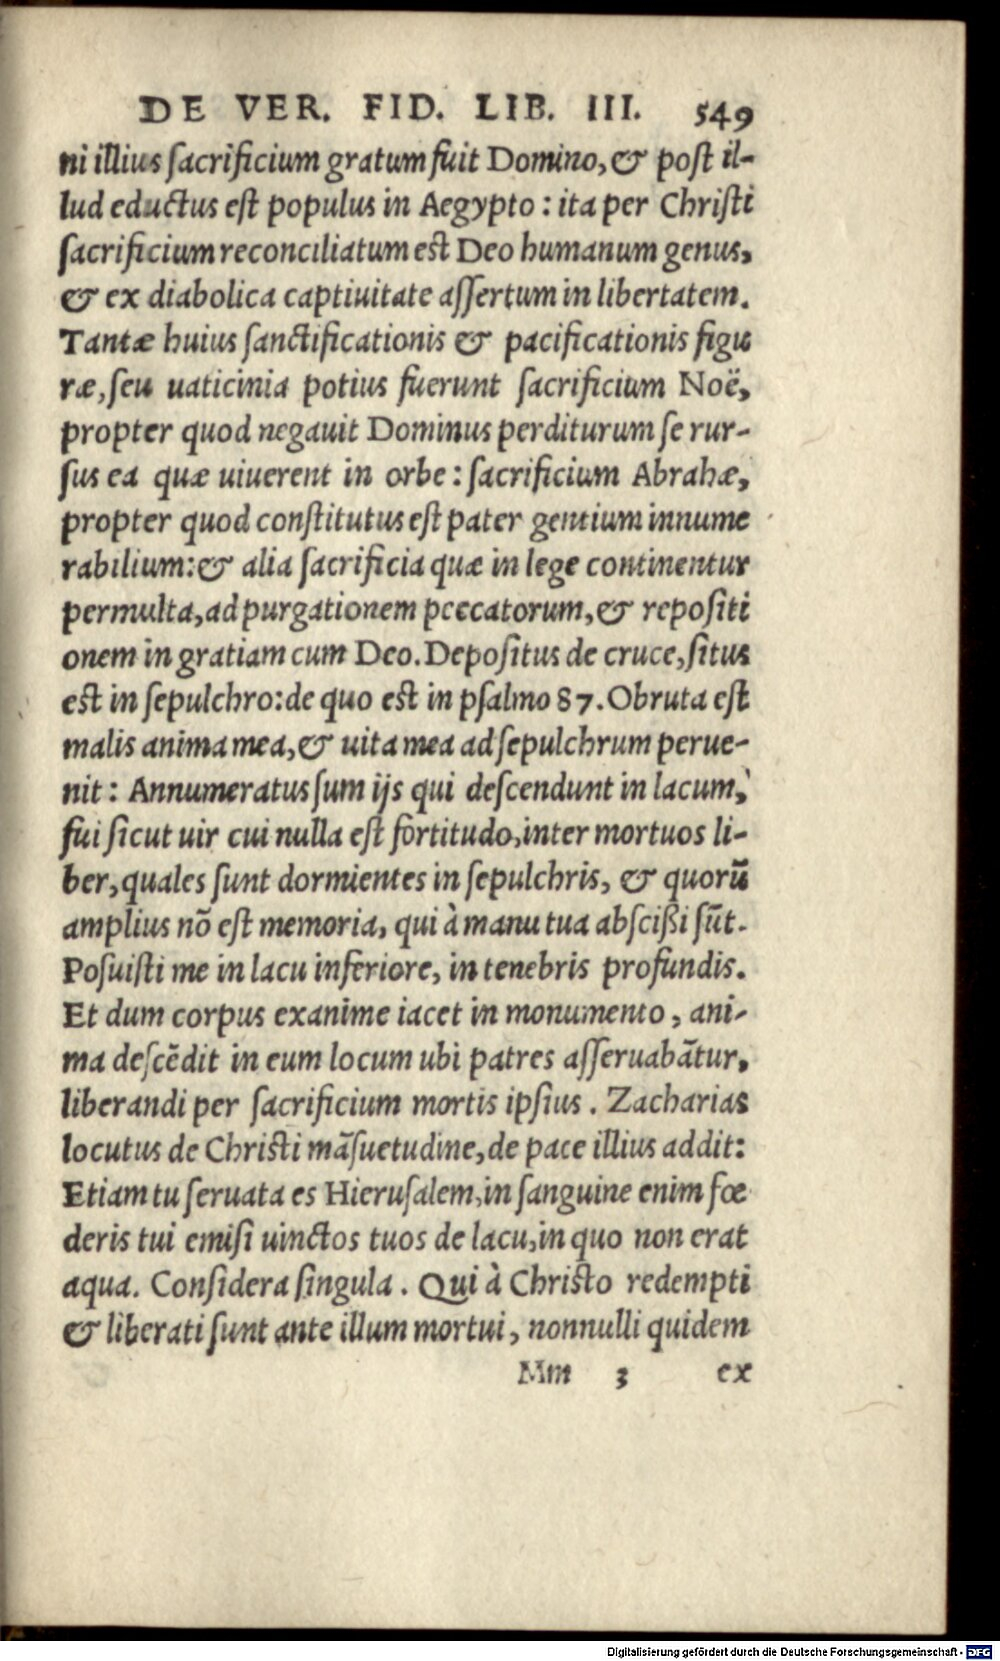 DE VER. FID. LIB. III. 549
ni illius ſacrificium gratum fuit Domino, & poſt il-
lud eductus eſt populus in Aegypto : ita per Chriſti
ſacrificium reconciliatum eſt Deo humanum genus,
& ex diabolica captiuitate aſſertum in libertatem.
Tantæ huius ſanctificationis & pacificationis figu
ræ, ſeu uaticinia potius fuerunt ſacrificium Noë,
propter quod negauit Dominus perditurum ſe rur-
ſus ea quæ uiuerent in orbe : ſacrificium Abrahæ,
propter quod conſtitutus eſt pater gentium innume
rabilium: & alia ſacrificia quæ in lege continentur
permulta, ad purgationem peccatorum, & repoſiti
onem in gratiam cum Deo. Depoſitus de cruce, ſitus
eſt in ſepulchro: de quo eſt in pſalmo 87. Obruta eſt
malis anima mea, & uita mea ad ſepulchrum perue-
nit : Annumeratus ſum ijs qui deſcendunt in lacum,
fui ſicut uir cui nulla eſt fortitudo, inter mortuos li-
ber, quales ſunt dormientes in ſepulchris, & quorū
amplius nō eſt memoria, qui à manu tua abſcißi ſūt.
Poſuiſti me in lacu inferiore, in tenebris profundis.
Et dum corpus exanime iacet in monumento, ani-
ma deſcēdit in eum locum ubi patres aſſeruabātur,
liberandi per ſacrificium mortis ipſius. Zacharias
locutus de Chriſti māſuetudine, de pace illius addit:
Etiam tu ſeruata es Hieruſalem, in ſanguine enim fœ
deris tui emiſi uinctos tuos de lacu, in quo non erat
aqua. Conſidera ſingula. Qui à Chriſto redempti
& liberati ſunt ante illum mortui, nonnulli quidem
Mm 3 ex
Digitalisierung gefördert durch die Deutsche Forschungsgemeinschaft - DFG